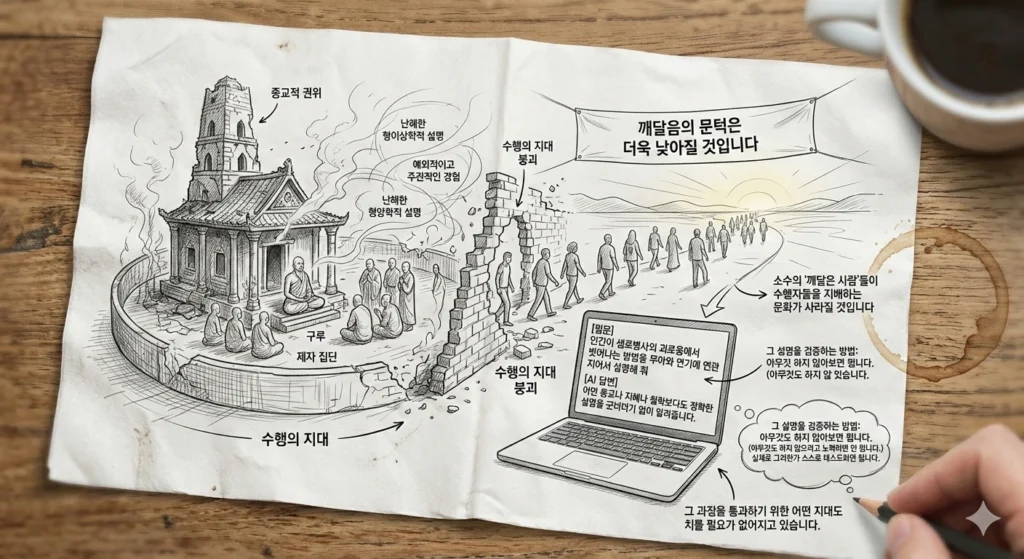 종교적 권위
난해한
형이상학적 설명
예외적이고
주관적인 경험
난해한
형앙학적 설명
구루
제자 집단
수행의 지대
수행의 지대
붕괴
수행의 지대
붕괴
깨달음의 문턱은
더욱 낮아질 것입니다
소수의 '깨달은 사람'들이
수행자들을 지배하는
문화가 사라질 것입니다
인간이 샘로병사의 괴로움에서
벗어나는 방범을 무아와 연기에 연관
지어서 설명해 줘
[AI 답변]
어떤 동교나 지혜나 철학보다도 정확한
설명을 군비더기 없이 일려줍니다.
그 섬명을 검증하는 방범:
아무깃 하지 않아보면 됩니다.
(아무것도 하지 않 있습니다.
그 설명을 검증하는 방범:
아무것도 하지 않아보면 됩니다.
(아무것도 하지 않으려고 노력하면 안 됩니다.)
실제로 그러한가 스스로 테스트하면 됩니다.
그 과장을 통과하기 위한 어떤 지대도
치를 필요가 없어지고 있습니다.